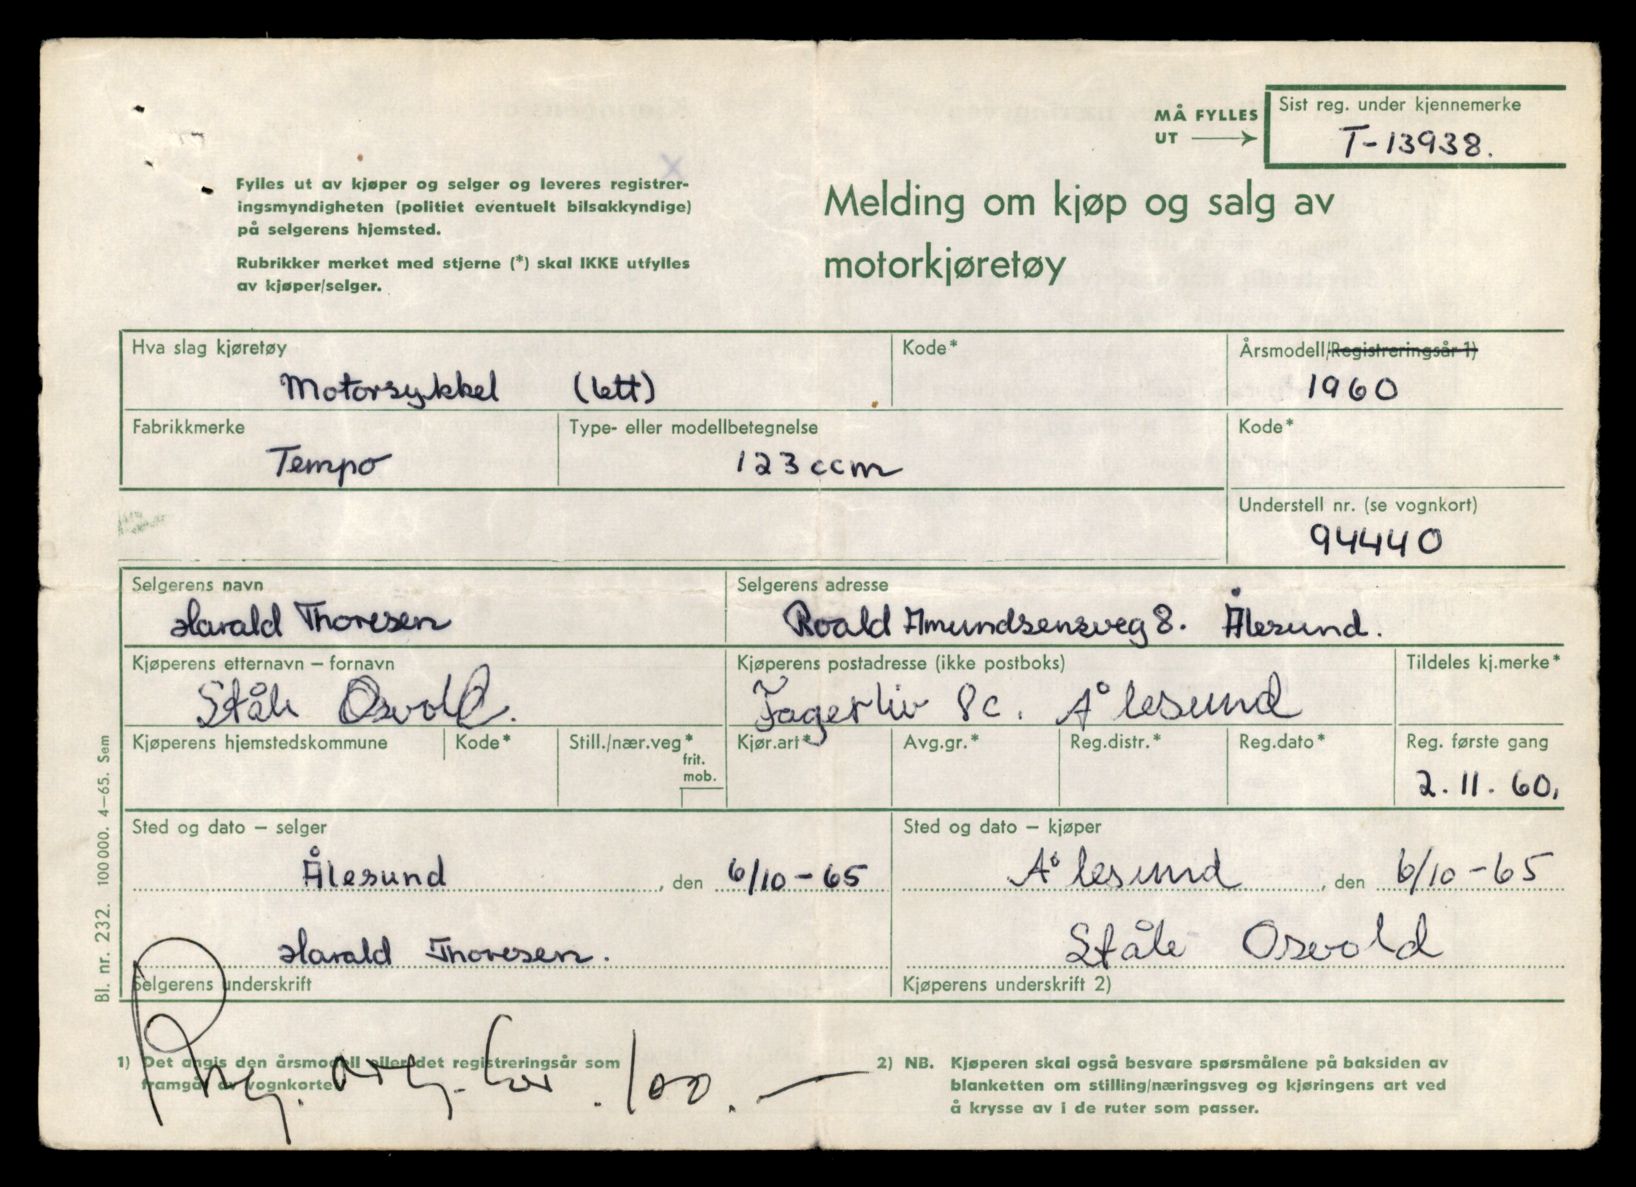 MÅ FYLLES
UT
Sist reg. under kjennemerke
T-13938.
Fylles ut av kjøper og selger og leveres registrer-
ingsmyndigheten (politiet eventuelt bilsakkyndige)
på selgerens hjemsted.
Rubrikker merket med stjerne (*) skal IKKE utfylles
av kjøper/selger.
Melding om kjøp og salg av
motorkjøretøy
Hva slag kjøretøy
Kode*
Årsmodell/Registreringsår 1)
Motorsykkel (lett)
1960
Fabrikkmerke
Type- eller modellbetegnelse
Kode*
Tempo
123 ccm
Understell nr. (se vognkort)
94440
Selgerens navn
Selgerens adresse
Harald Thoresen
Roald Amundsensveg 8. Ålesund.
Kjøperens etternavn – fornavn
Kjøperens postadresse (ikke postboks)
Tildeles kj.merke*
Ståle Osvold.
Fagerliv 8c. Ålesund
Kjøperens hjemstedskommune
Kode*
Still./nær.veg*
frit.
mob.
Kjør.art*
Avg.gr.*
Reg.distr.*
Reg.dato*
Reg. første gang
2.11.60.
Sted og dato – selger
Sted og dato – kjøper
Ålesund, den 6/10-65
Ålesund, den 6/10-65
Harald Thoresen.
Ståle Osvold
Selgerens underskrift
Kjøperens underskrift 2)
1) Det angis den årsmodell eller det registreringsår som
framgår av vognkortet
100.—
2) NB. Kjøperen skal også besvare spørsmålene på baksiden av
blanketten om stilling/næringsveg og kjøringens art ved
å krysse av i de ruter som passer.
Bl. nr. 232. 100 000. 4–65. Sem